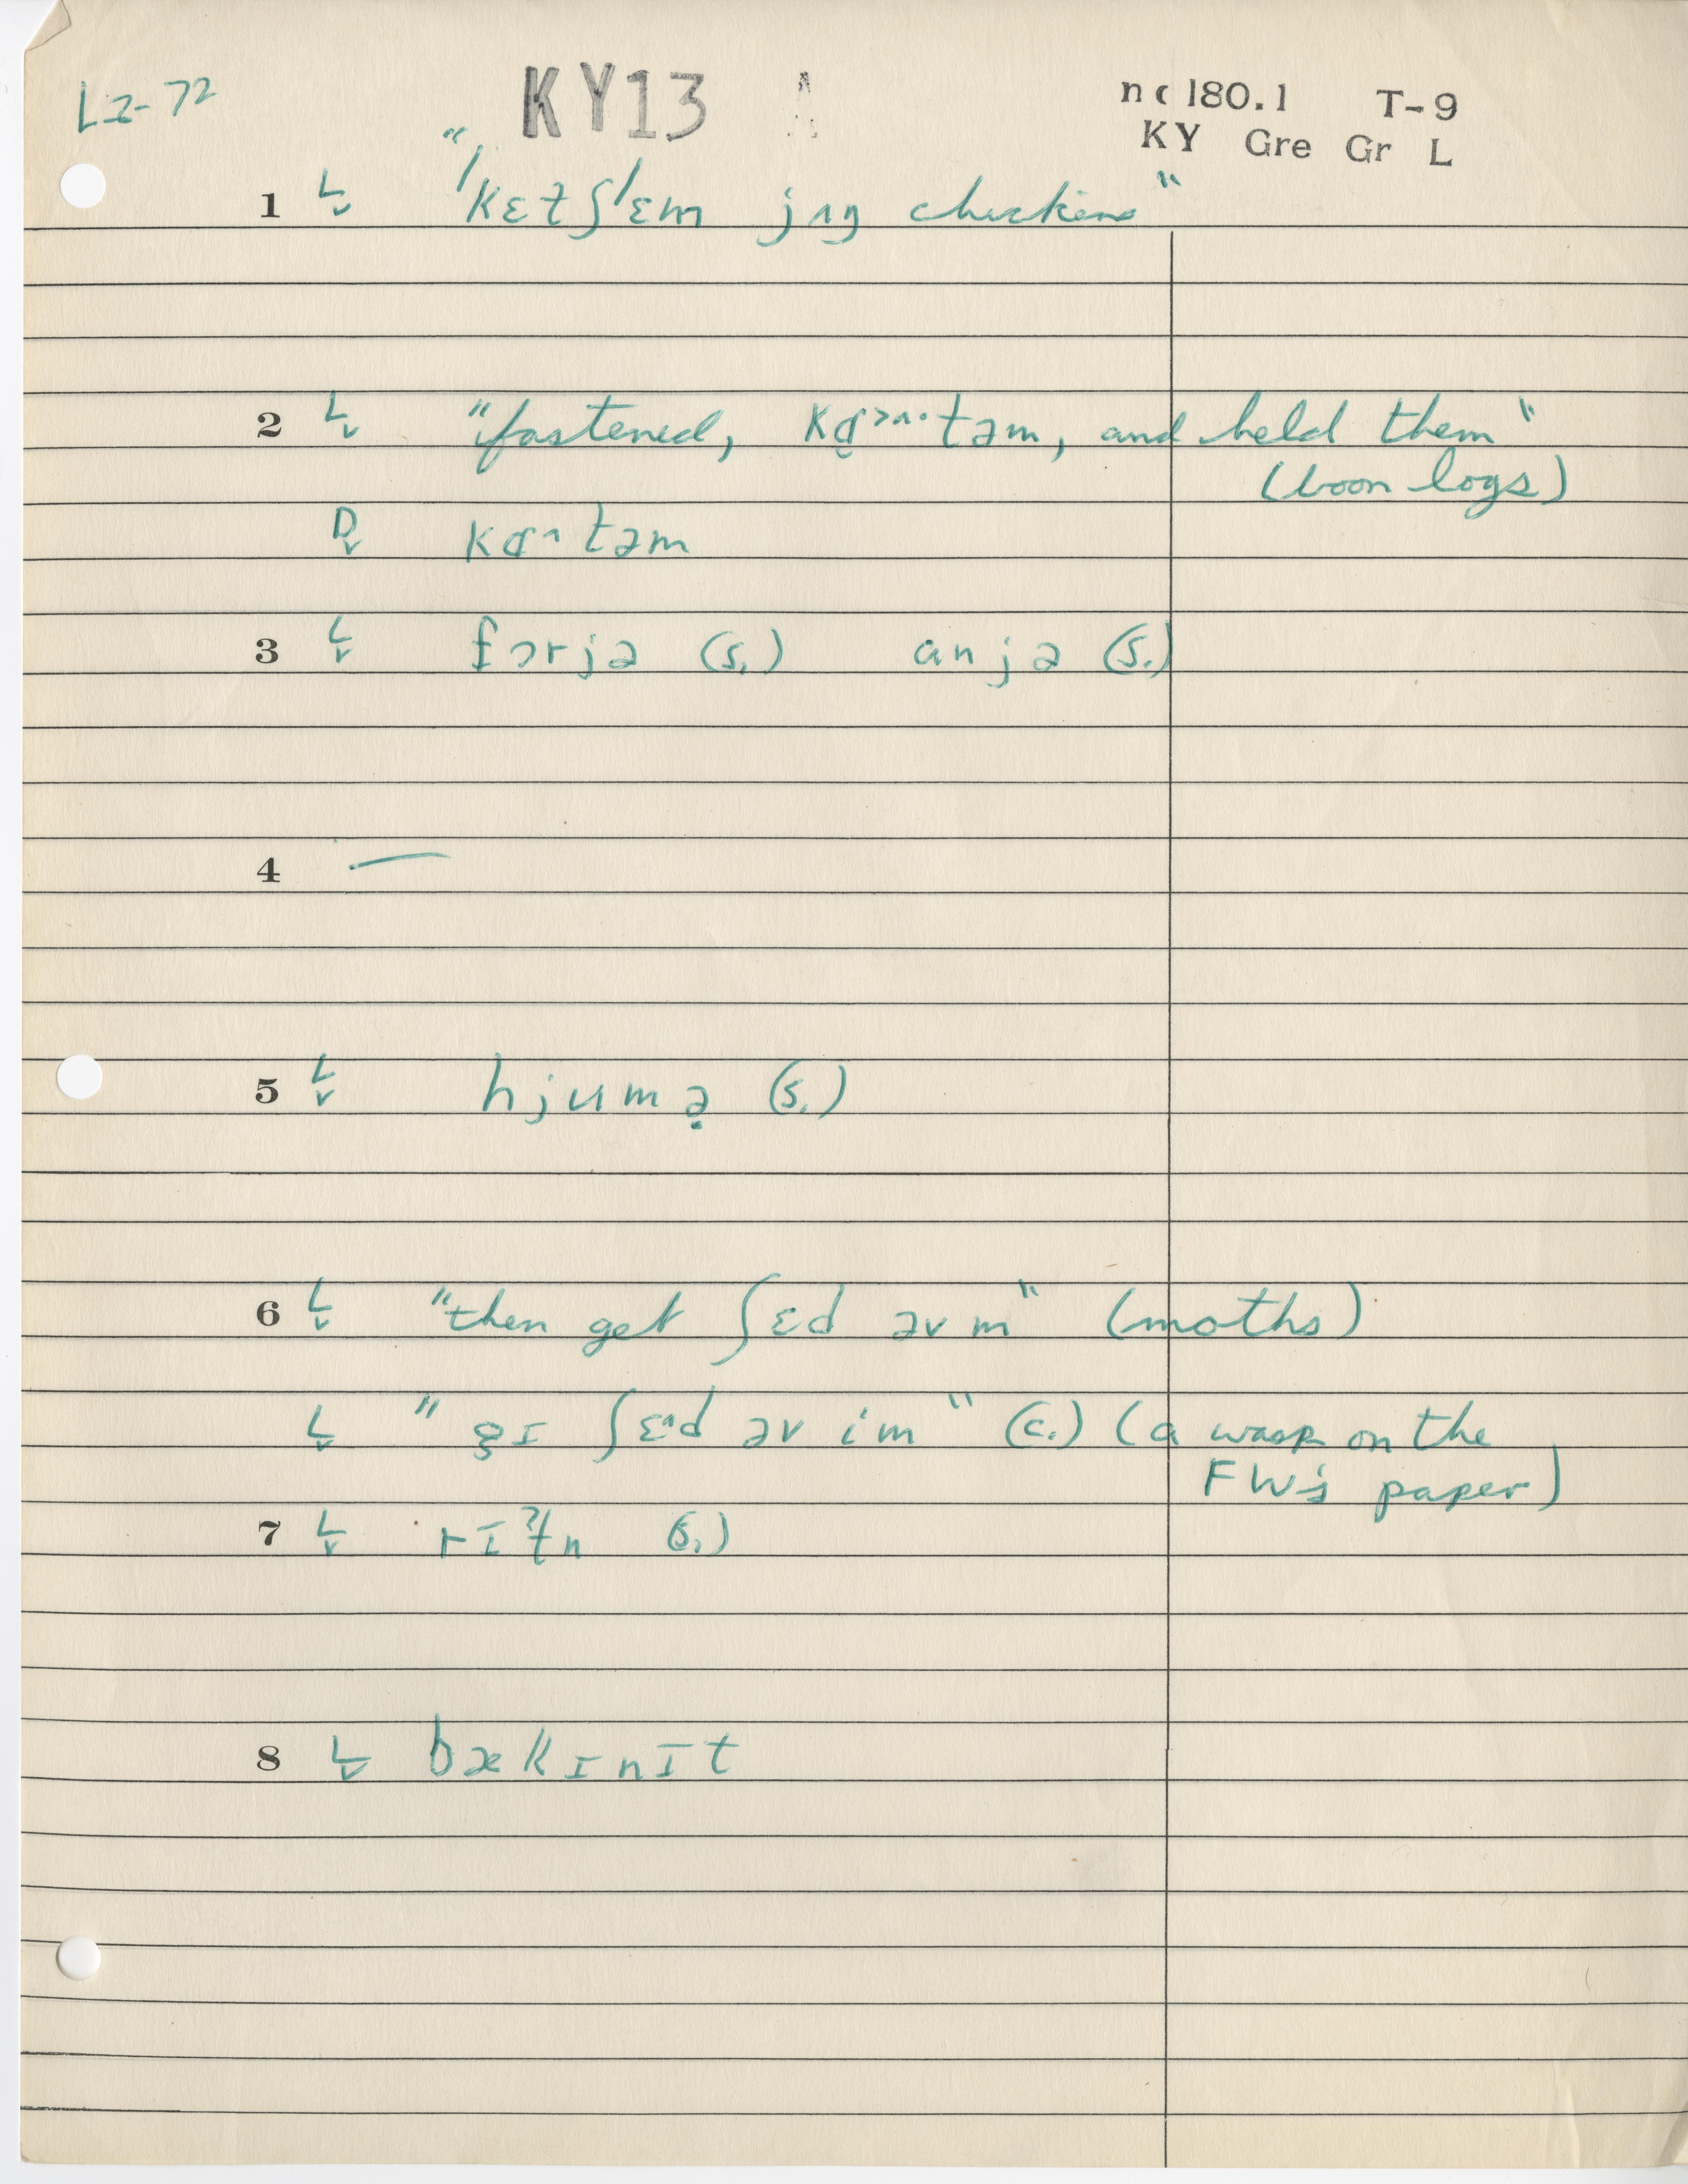 LI-72
KY13 A
nc 180.1 T-9
KY Gre Gr L
1 L "ˈkɛtʃ ˈɛm jʌŋ chickens"
2 L "fastened, kɑ>ʌ·təm, and held them"
(boom logs)
D kɑ^təm
3 L fɔrjə (s.) anjə (s.)
4 —
5 L hjumə̣ (s.)
6 L "then get ʃɛd əv m" (moths)
L " ʃɛ^d əv im" (c.) (a wasp on the
FW's paper)
7 L rɪʔtn (s.)
8 L bækɪnɪt